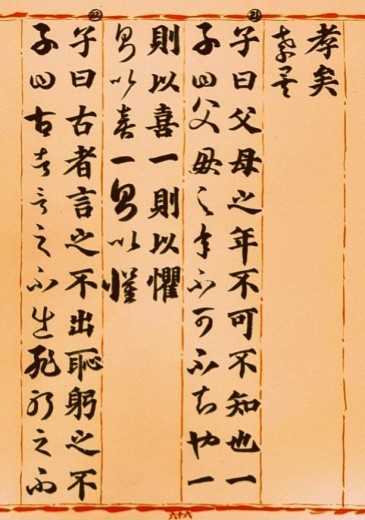 孝矣
孝矣
㉑
子曰父母之年不可不知也一
子曰父母之年不可不知也一
則以喜一則以懼
則以喜一則以懼
㉒
子曰古者言之不出恥躬之不
子曰古者言之不出恥躬之不